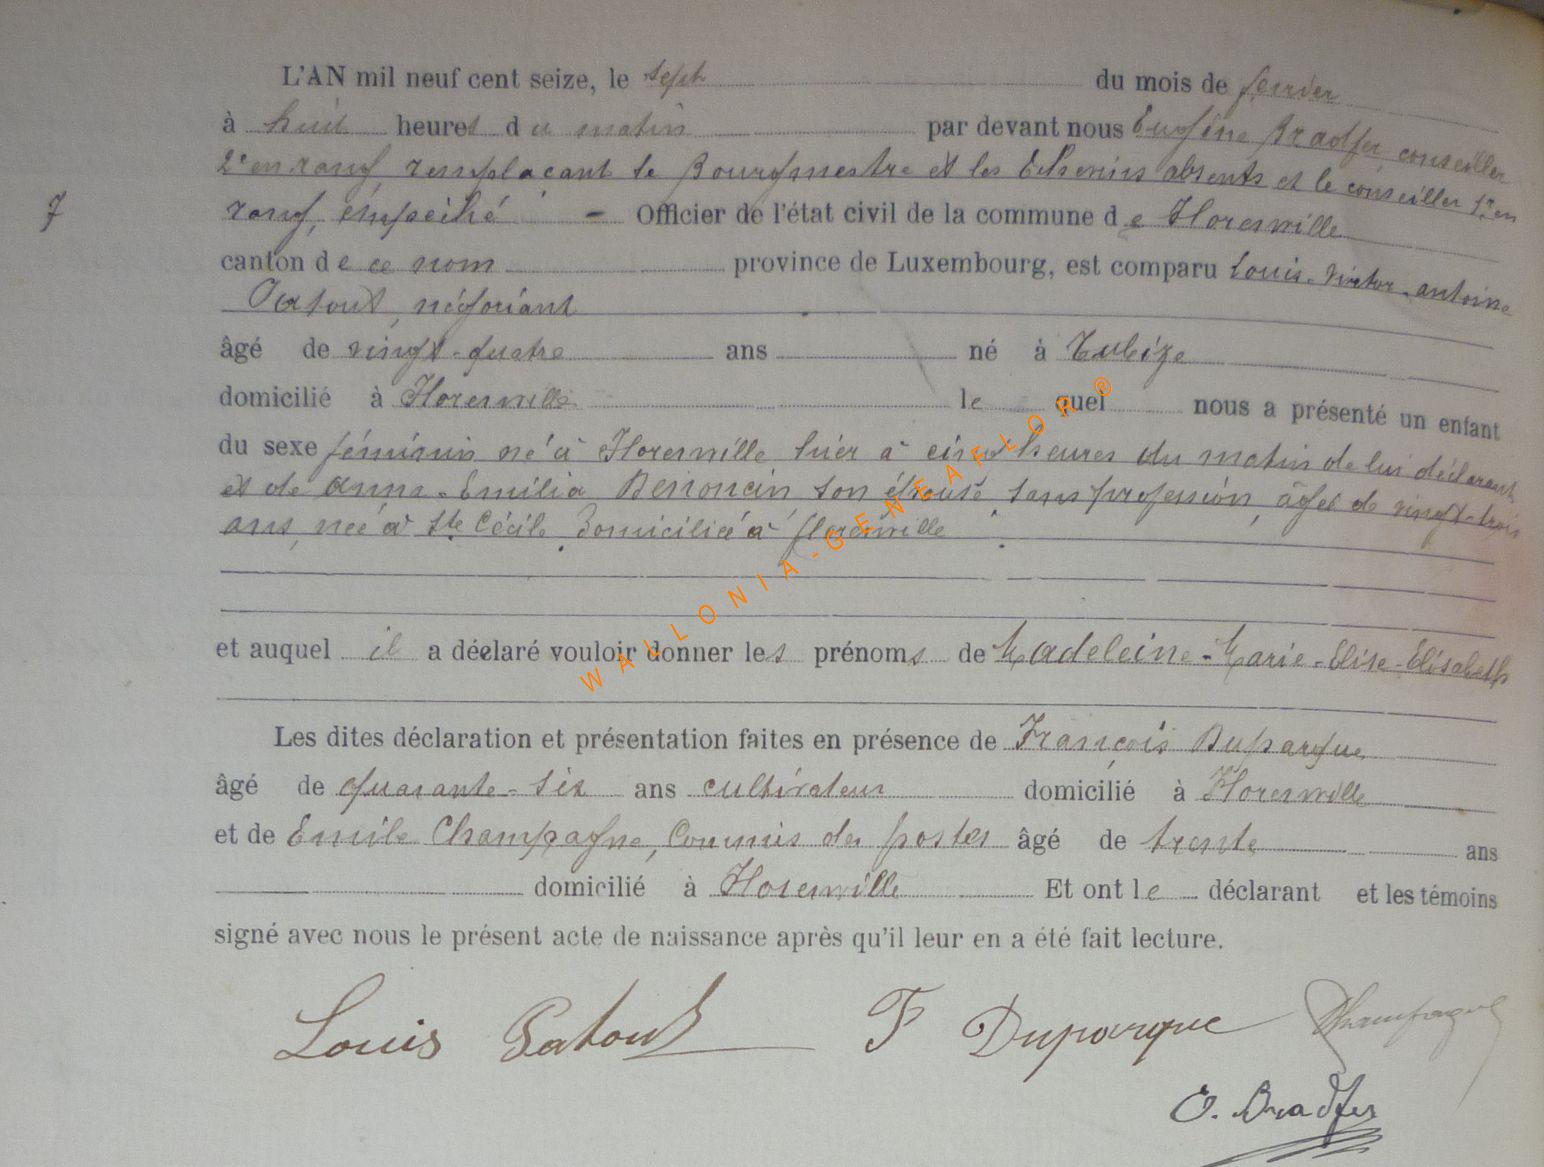 L'AN mil neuf cent seize, le sept du mois de février
à huit heures du matin par devant nous Eugène Bradfer conseiller
2e en rang, remplaçant le Bourgmestre et les Echevins absents et le conseiller 1er en
7 rang, empêché - Officier de l'état civil de la commune de Florenville
canton de ce nom province de Luxembourg, est comparu Louis-Victor-Antoine
Patout, négociant
âgé de vingt-quatre ans né à Tubize
domicilié à Florenville lequel nous a présenté un enfant
du sexe féminin né à Florenville hier à cinq heures du matin de lui déclarant
et de Anna-Emilia son épouse, sans profession, âgée de vingt-trois
ans, née à Ste Cécile domiciliée à Florenville
et auquel il a déclaré vouloir donner les prénoms de Madeleine-Marie-Elise-Elisabeth
Les dites déclaration et présentation faites en présence de François Duparque
âgé de quarante-six ans cultivateur domicilié à Florenville
et de Emile Champagne, Commis des postes âgé de trente ans
domicilié à Florenville Et ont le déclarant et les témoins
signé avec nous le présent acte de naissance après qu'il leur en a été fait lecture.
Louis Patout F Duparque Champagne
E. Bradfer
WALLONIA-GENEAFLOR®